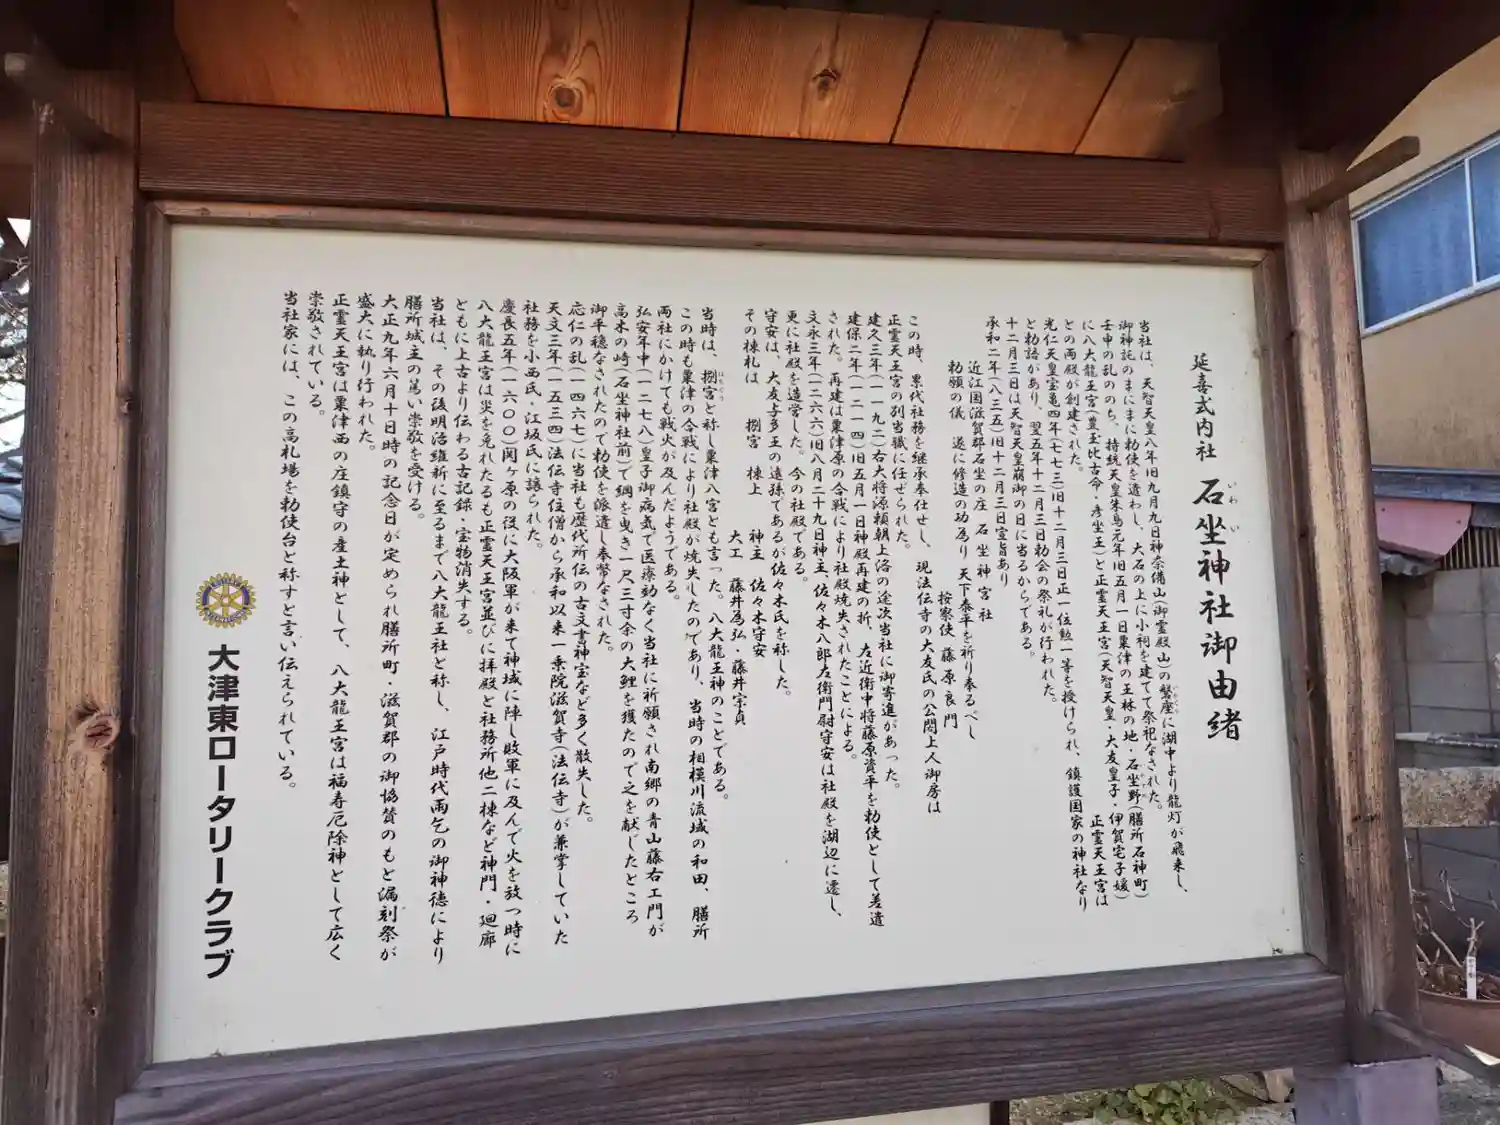 延喜式内社 石坐神社御由緒
いわい
当社は、天智天皇八年旧九月九日神奈備山(御霊殿山)の磐座に湖中より龍灯が飛来し、
御神託のまにまに勅使を遣わし、大石の上に小祠を建てて祭祀なされた。
壬申の乱ののち、持統天皇朱鳥元年旧五月一日粟津の王林の地・石坐野(膳所石神町)
に八大龍王宮(豊玉比古命・彦坐王)と正霊天王宮(天智天皇・大友皇子・伊賀宅子媛)
との両殿が創建された。
光仁天皇宝亀四年(七七三)旧十二月三日正一位勲一等を授けられ、鎮護国家の神社なり
と勅語があり、翌五年十二月三日勅会の祭礼が行われた。正霊天王宮は
十二月三日は天智天皇崩御の日に当るからである。
承和二年(八三五)旧十二月三日宣旨あり
近江国滋賀郡石坐の庄 石坐神社
勅願の儀 遂に修造の功為り 天下泰平を祈り奉るべし
按察使 藤原良門
この時、累代社務を継承奉仕せし、現法伝寺の大友氏の公閏上人御房は
正霊天王宮の別当職に任ぜられた。
建久三年(一一九二)右大将源頼朝上洛の途次当社に御寄進があった。
建保二年(一二一四)旧五月一日神殿再建の折、左近衛中将藤原資平を勅使として差遣
された。再建は粟津原の合戦により社殿焼失されたことによる。
文永三年(一二六六)旧八月二十九日神主、佐々木八郎左衛門尉守安は社殿を湖辺に遷し、
更に社殿を造営した。今の社殿である。
守安は、大友与多王の遠孫であるが佐々木氏を称した。
その棟札は 捌宮 棟上 神主 佐々木守安
大工 藤井為弘・藤井宗貞
当時は、捌宮と称し粟津八宮とも言った。八大龍王神のことである。
はちぐう
この時も粟津の合戦により社殿が焼失したのであり、当時の相模川流域の和田、膳所
両社にかけても戦火が及んだようである。
弘安年中(一二七八)皇子御病気で医療効なく当社に祈願され南郷の青山藤右エ門が
高木の崎(石坐神社前)で網を曳き一尺三寸余の大鯉を獲たので之を献じたところ
御平穏なされたので勅使を派遣し奉幣なされた。
応仁の乱(一四六七)に当社も歴代所伝の古文書神宝など多く散失した。
天文三年(一五三四)法伝寺住僧から承和以来一乗院滋賀寺(法伝寺)が兼掌していた
社務を小西氏、江坂氏に譲られた。
慶長五年(一六〇〇)関ヶ原の役に大阪軍が来て神域に陣し敗軍に及んで火を放つ時に
八大龍王宮は災を免れたるも正霊天王宮並びに拝殿と社務所他二棟など神門・廻廊
ともに上古より伝わる古記録・宝物消失する。
当社は、その後明治維新に至るまで八大龍王社と称し、江戸時代雨乞の御神徳により
膳所城主の篤い崇敬を受ける。
大正九年六月十日時の記念日が定められ膳所町・滋賀郡の御協賛のもと漏刻祭が
盛大に執り行われた。
正霊天王宮は粟津西の庄鎮守の産土神として、八大龍王宮は福寿厄除神として広く
崇敬されている。
当社家には、この高札場を勅使台と称すと言い伝えられている。
大津東ロータリークラブ